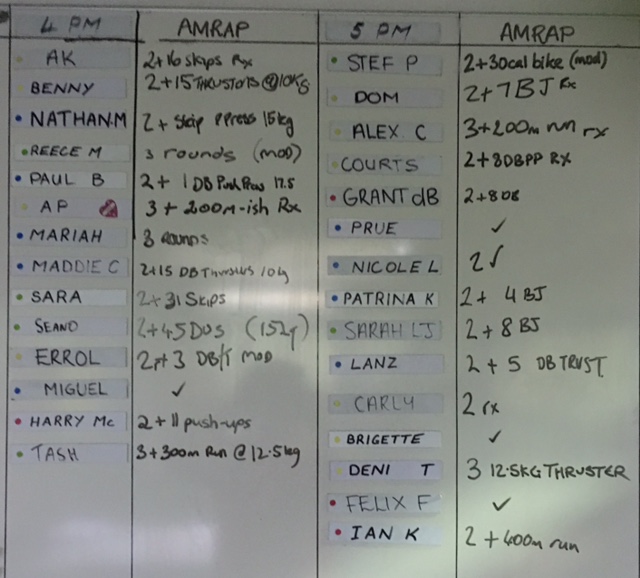 4 PM AMRAP
AK 2+16 skips Rx
BENNY 2+15 THRUSTORS @10KG
NATHAN.M 2 + Skip PPress 15kg
REECE M 3 rounds (mod)
PAUL B 2 + 1 DB Push Press 17.5
AP 3 + 200m-ish Rx
MARIAH 3 Rounds
MADDIE C 2+15 DB Thrusters 10kg
SARA 2+31 Skips
SEANO 2+45 DUS
ERROL 3 DB/T MOD
MIGUEL ✓
HARRY Mc 2+11 push-ups
TASH 3+300m Run @ 12.5kg
5 PM AMRAP
STEF P 2+30cal bike (mod)
DOM 2+7 BJ Rx
ALEX C 3+200m run rx
COURTS 2+8DBPP RX
GRANT dB 2+8DB
PRUE ✓
NICOLE L 2 ✓
PATRINA K 2 + 4 BJ
SARAH LJ 2 + 8 BJ
LANZ 2 + 5 DB TRUST
CARLY 2 rx
BRIGETTE ✓
DENI T 3 12.5KG THRUSTER
FELIX F ✓
IAN K 2 + 400m run